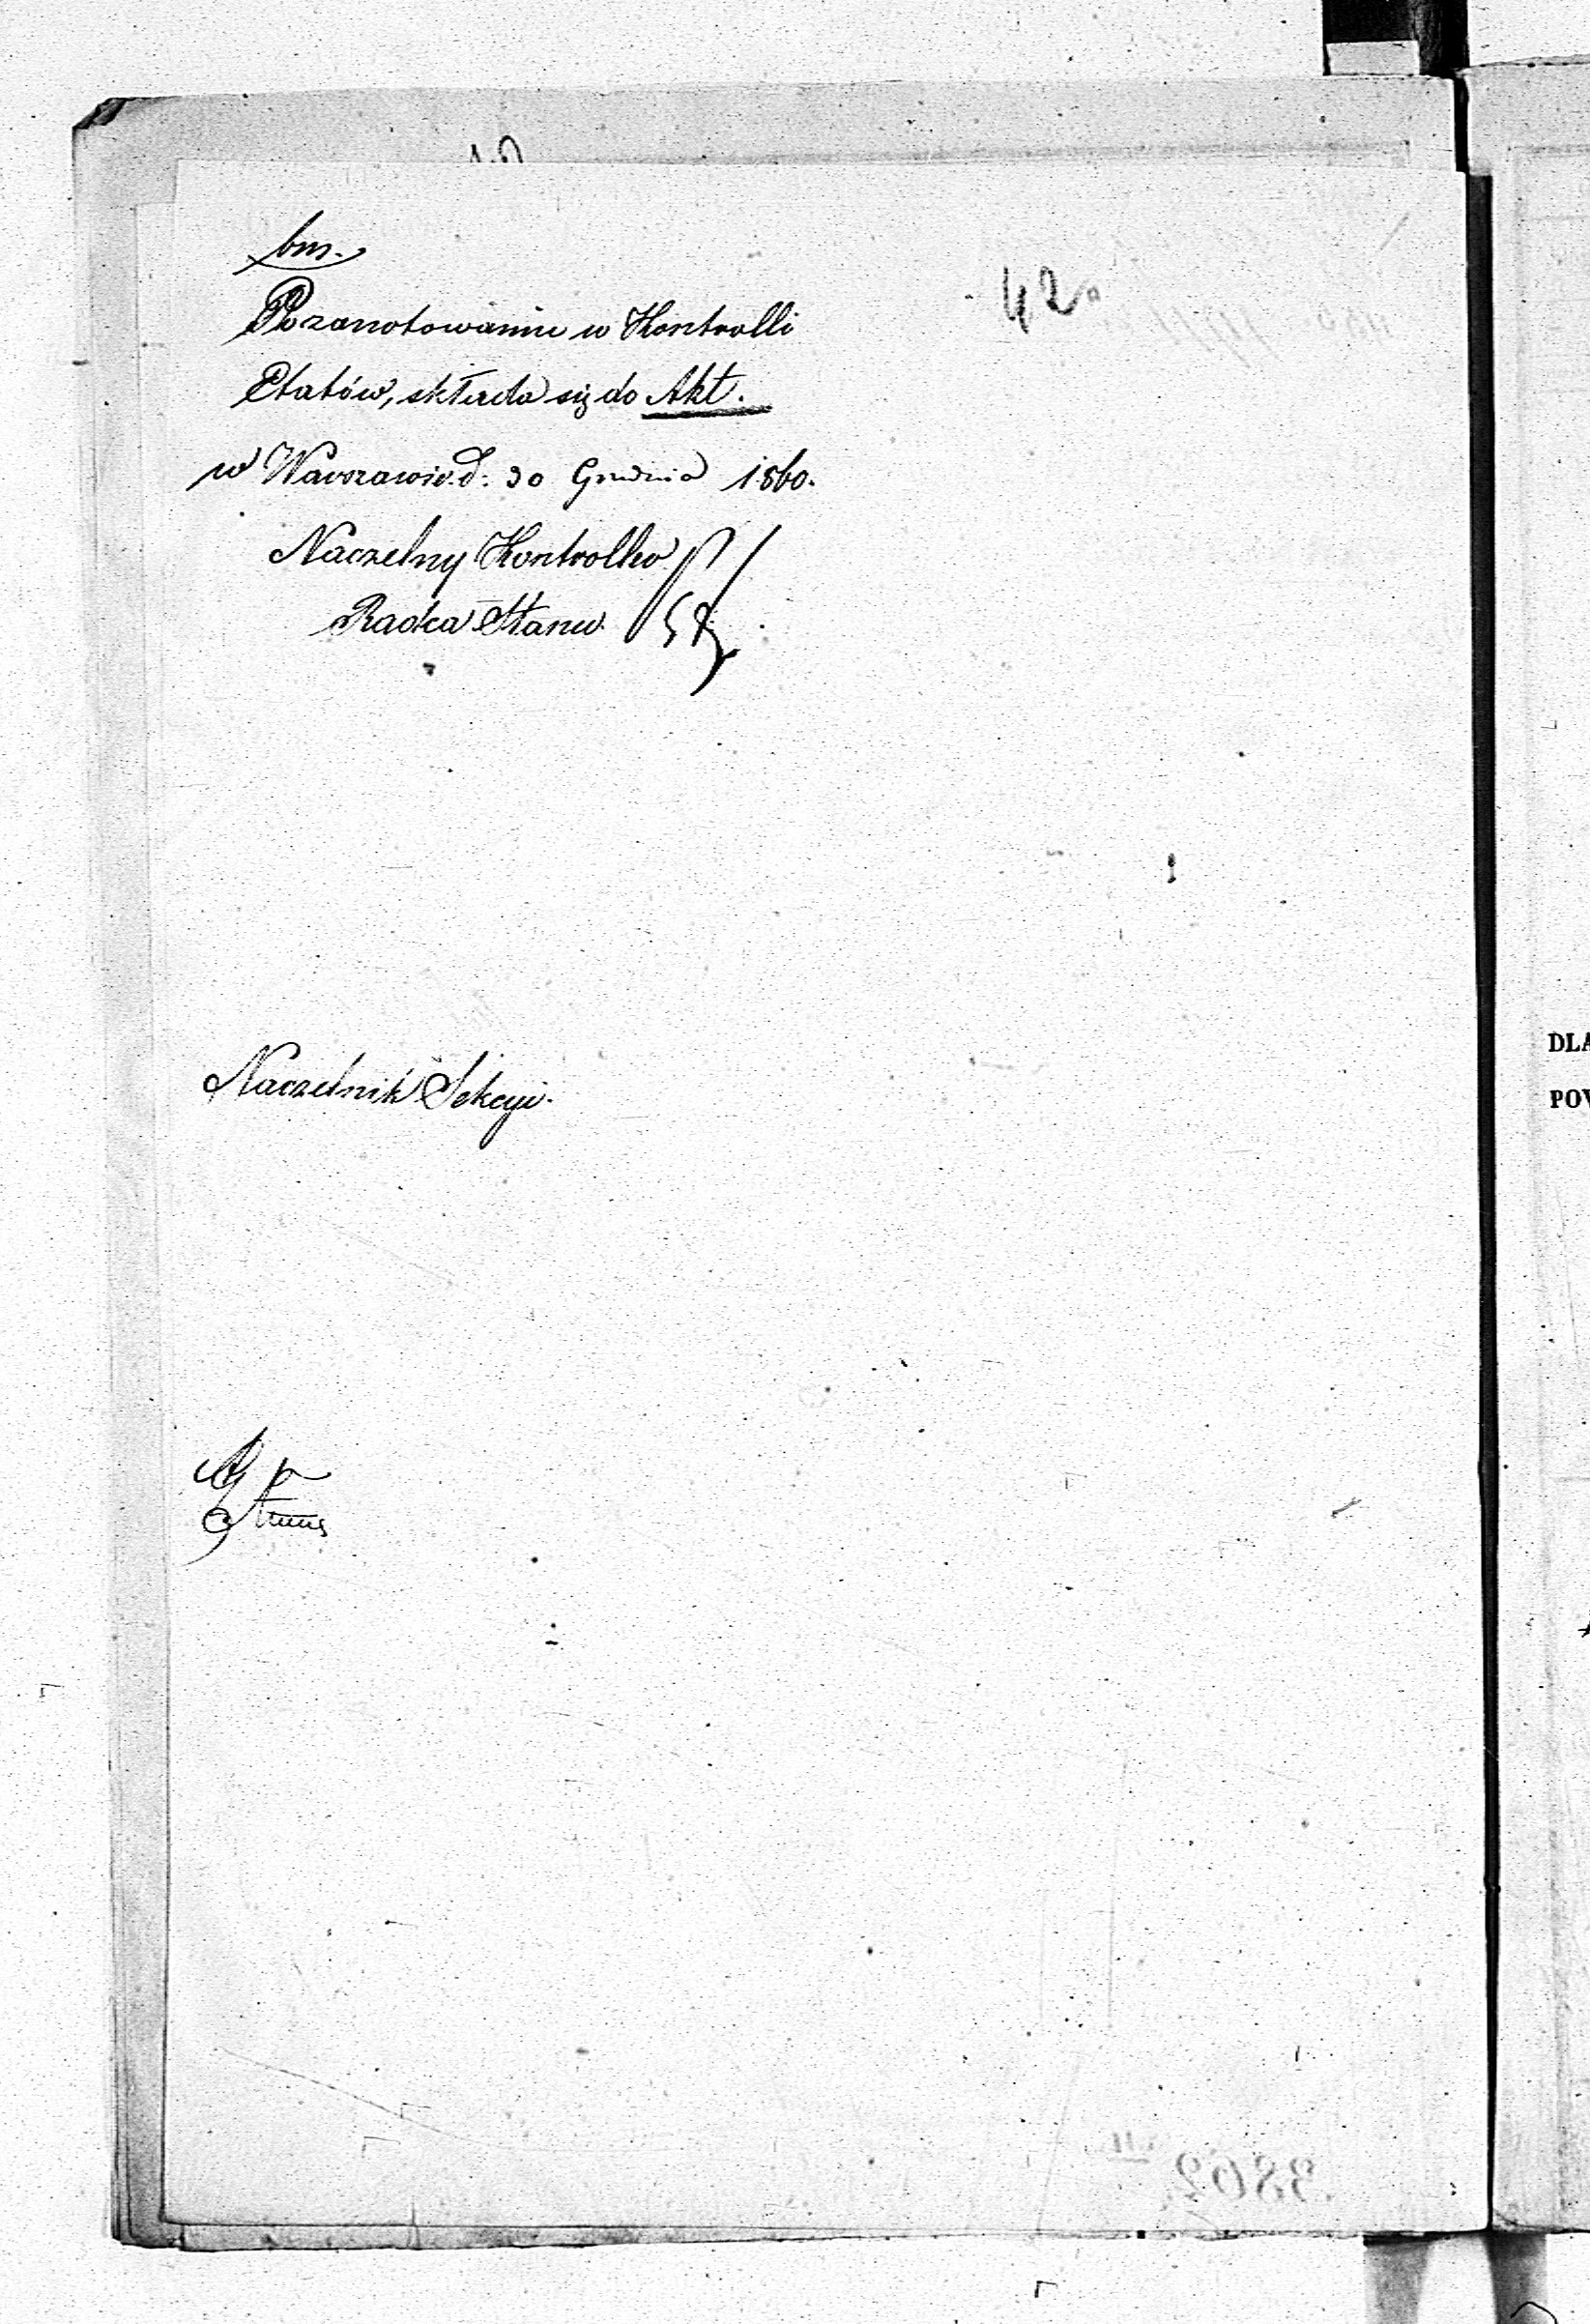 bm.
42
Po zanotowaniu w Kontrolli
Etatów, składa się do Akt.
w Warszawie d: 30 Grudnia 1860.
Naczelny Kontroller
Radca Stanu
Naczelnik Sekcyi.
DLA
3862